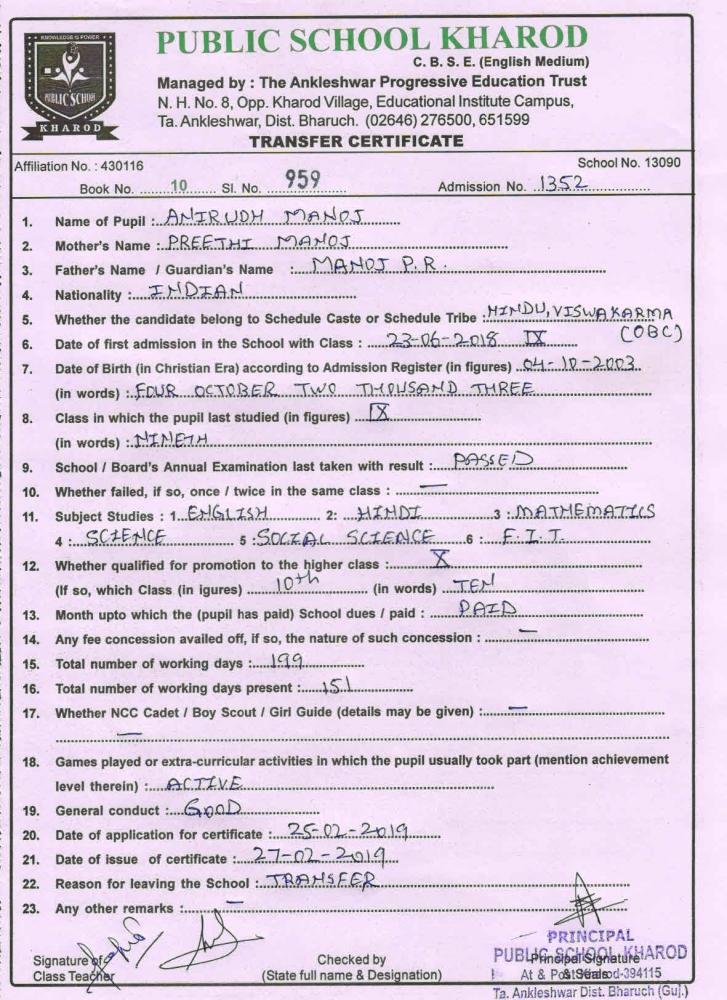 KNOWLEDGE IS POWER
PUBLIC SCHOOL
KHAROD
PUBLIC SCHOOL KHAROD
C. B. S. E. (English Medium)
Managed by : The Ankleshwar Progressive Education Trust
N. H. No. 8, Opp. Kharod Village, Educational Institute Campus,
Ta. Ankleshwar, Dist. Bharuch. (02646) 276500, 651599
TRANSFER CERTIFICATE
Affiliation No. : 430116 School No. 13090
Book No. 10 Sl. No. 959 Admission No. 1352
1. Name of Pupil : ANIRUDH MANOJ
2. Mother's Name : PREETHI MANOJ
3. Father's Name / Guardian's Name : MANOJ P.R.
4. Nationality : INDIAN
5. Whether the candidate belong to Schedule Caste or Schedule Tribe : HINDU, VISWAKARMA (OBC)
6. Date of first admission in the School with Class : 23-06-2018 IX
7. Date of Birth (in Christian Era) according to Admission Register (in figures) 04-10-2003
(in words) : FOUR OCTOBER TWO THOUSAND THREE
8. Class in which the pupil last studied (in figures) IX
(in words) : NINETH
9. School / Board's Annual Examination last taken with result : PASSED
10. Whether failed, if so, once / twice in the same class : —
11. Subject Studies : 1 ENGLISH 2: HINDI 3 : MATHEMATICS
4 : SCIENCE 5 : SOCIAL SCIENCE 6 : F.I.T.
12. Whether qualified for promotion to the higher class : X
(If so, which Class (in igures) 10th (in words) TEN
13. Month upto which the (pupil has paid) School dues / paid : PAID
14. Any fee concession availed off, if so, the nature of such concession : —
15. Total number of working days : 199
16. Total number of working days present : 151
17. Whether NCC Cadet / Boy Scout / Girl Guide (details may be given) : —
—
18. Games played or extra-curricular activities in which the pupil usually took part (mention achievement
level therein) : ACTIVE
19. General conduct : GOOD
20. Date of application for certificate : 25-02-2019
21. Date of issue of certificate : 27-02-2019
22. Reason for leaving the School : TRANSFER
23. Any other remarks : —
PRINCIPAL
Signature of Checked by PUBLIC SCHOOL KHAROD
Principal Signature
Class Teacher (State full name & Designation) At & Post Kharod-394115
& Seal
Ta. Ankleshwar Dist. Bharuch (Guj.)